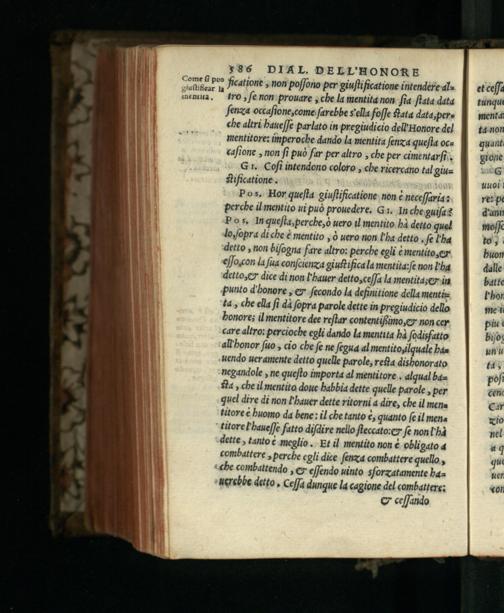 386 DIAL. DELL'HONORE
Come si puo
giustificar la
mentita.
ficatione, non possono per giustificatione intendere al-
tro, se non prouare, che la mentita non sia stata data
senza occasione, come sarebbe s'ella fosse stata data, per-
che altri hauesse parlato in pregiudicio dell'Honore del
mentitore: imperoche dando la mentita senza questa oc-
casione, non si può far per altro, che per cimentarsi.
GI. Così intendono coloro, che ricercano tal giu-
stificatione.
POS. Hor questa giustificatione non è necessaria:
perche il mentito ui può prouedere. GI. In che guisa?
POS. In questa, perche, ò uero il mentito hà detto quel
lo, sopra di che è mentito, ò uero non l'ha detto. se l'ha
detto, non bisogna fare altro: perche egli è mentito, &
esso, con la sua conscienza giustifica la mentita: se non l'ha
detto, & dice di non l'hauer detto, cessa la mentita; & in
punto d'honore, & secondo la definitione della menti-
ta, che ella si dà sopra parole dette in pregiudicio dello
honore; il mentitore dee restar contentissimo, & non cer
care altro: percioche egli dando la mentita hà sodisfatto
all'honor suo, cio che se ne segua al mentito, ilquale ha-
uendo ueramente detto quelle parole, resta dishonorato
negandole, ne questo importa al mentitore. alqual ba-
sta, che il mentito doue habbia dette quelle parole, per
quel dire di non l'hauer dette ritorni a dire, che il men-
titore è huomo da bene: il che tanto è, quanto se il men-
titore l'hauesse fatto disdire nello steccato: & se non l'hà
dette, tanto è meglio. Et il mentito non è obligato a
combattere, perche egli dice senza combattere quello,
che combattendo, & essendo uinto sforzatamente ha-
uerebbe detto. Cessa dunque la cagione del combattere:
& cessando